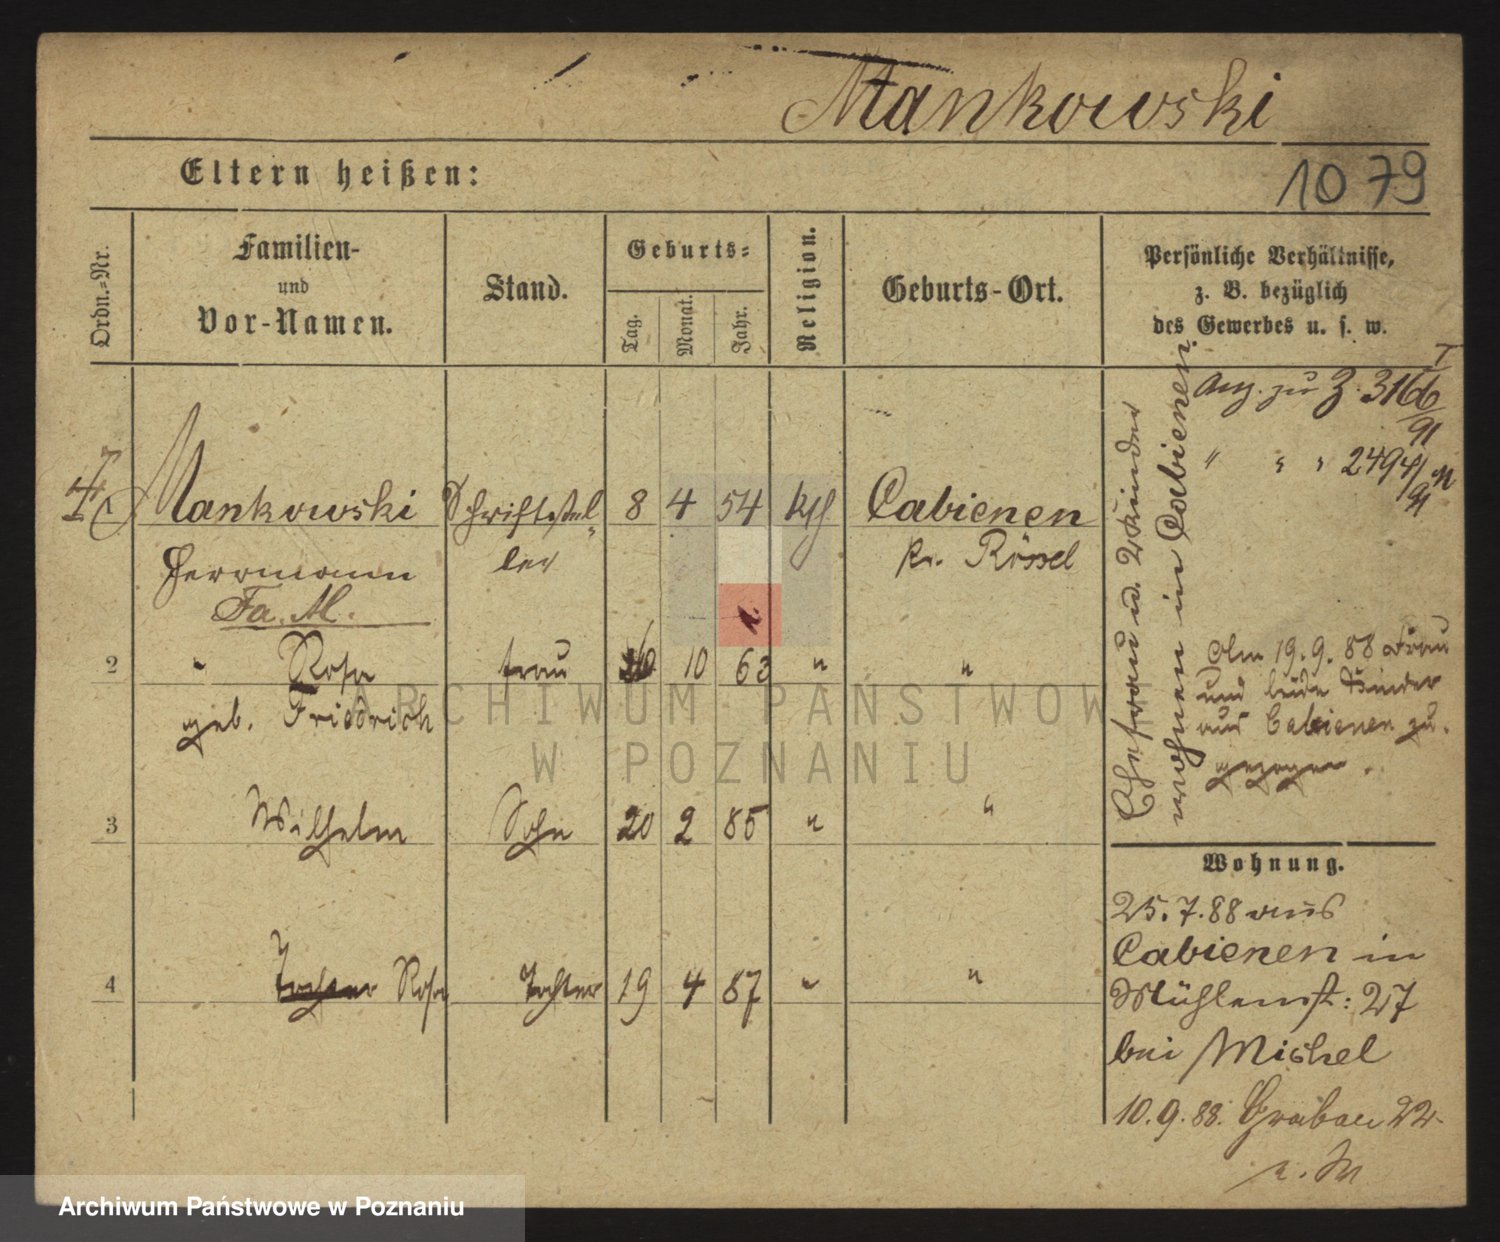 Mankowski
1079
Eltern heißen:
Ordn.-Nr.
Familien-
und
Vor-Namen.
Stand.
Geburts-
Tag.
Monat.
Jahr.
Religion.
Geburts-Ort.
Persönliche Verhältnisse,
z. B. bezüglich
des Gewerbes u. s. w.
Ang. zu Z. 3166/91
" " " 2494/91
Mankowski Schriftstel- 8 4 54 kth Cabienen
Herrmann ler Kr. Rössel
Fa. M.
2 " Rosa Frau 10 63 " "
geb. Friedrich
3 Wilhelm Sohn 20 2 85 " "
4 Tochter Rosa Tochter 19 4 87 " "
Ehefrau u. 2 Kinder
wohnen in Cabienen.
Am 19.9.88 Frau
und beide Kinder
aus Cabienen zu-
gezogen.
Wohnung.
25.7.88 aus
Cabienen in
Mühlenst: 27
bei Michel
10.9.88. Graben 22
ARCHIWUM PAŃSTWOWE
W POZNANIU
Archiwum Państwowe w Poznaniu